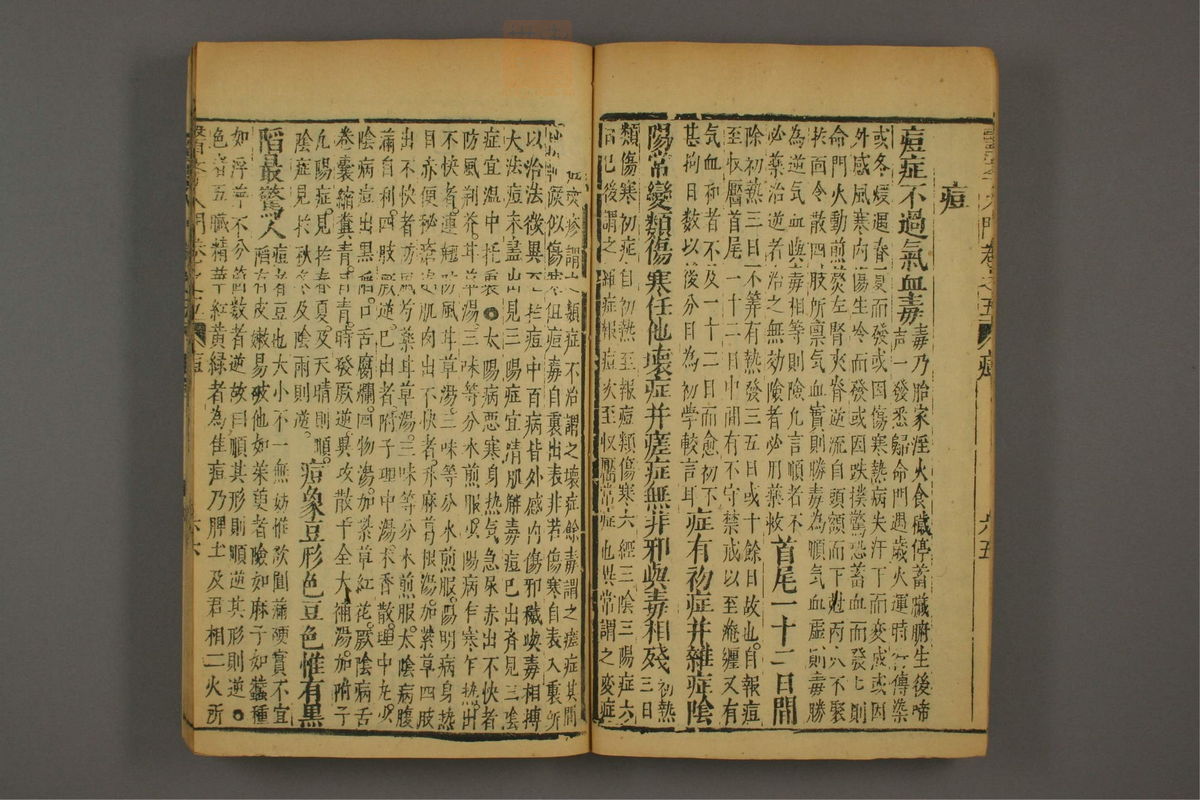 痘
痘症不過氣血毒毒乃胎家淫火食穢停蓄臟腑生後啼
聲一發悉歸命門遇歲火運時行傳染
或冬煖過春夏而發或因傷寒熱病失汗下而變成或因
外感風寒內傷生冷而發或因跌撲驚恐蓄血而發
命門火動煎熬左腎夾脊逆流自頭額而下
於面令散四肢所禀氣血實則勝毒為順氣血虛則毒勝
為逆氣血與毒相等則險凢言順者不
必藥治逆者治之無効險者必用藥救首尾一十二日間
除初熱三日不等有熱發三五日或十餘日故也自報痘
至收靨首尾一十二日中間有不守禁戒以至纏又有
氣血和者不及一十二日而愈初不
甚拘日數以後分日為初學較言耳症有初症并雜症陰
陽常變類傷寒任他壞症并瘥症無非邪與毒相殘初熱
三日
類傷寒初症自初熱至報痘類傷寒六經三陰三陽症六
日已後謂之雜症報痘次至收靨常症也異常謂之變症
發疹謂之類症不治謂之壞症餘毒謂之瘥症其間
症候似傷寒但痘毒自裏出表非若傷寒自表入裏所
以治法微異至於痘中百病皆外感內傷邪穢與毒相搏
大法痘未盡出見三陽症宜清肌解毒痘已出齊見三陰
症宜溫中托裏●太陽病惡寒身熱氣急尿赤出不快者
防風荆芥甘草湯三味等分水煎服陽病乍寒乍熱出
不快者連翹防風甘草湯三味等分水煎服陽明病身熱
目赤便秘肌肉出不快者升麻葛根湯加紫草四肢
出不快者防風芍藥甘草湯三味等分水煎服太陰病腹
滿自利四肢厥逆已出者附子理中湯木香散理中
陰病痘出黑陷口舌腐爛四物湯加紫草紅花厥陰病舌
卷囊縮糞青青時發厥逆異攻散十全大補湯加附子
凢陽症見於春夏及天晴則順
陰症見於秋冬及陰雨則逆痘象豆形色豆色惟有黑
陷最驚人痘者豆也大小不一無妨惟欲圓滿硬實不宜
陷有皮嫩易破他如茱萸者險如麻子如蠶種
如浮萍不分箇數者逆故曰順其形則順逆其形則逆●
色者五臟精華紅黃緑者為佳痘乃脾土及君相二火所
痘
六五
六六